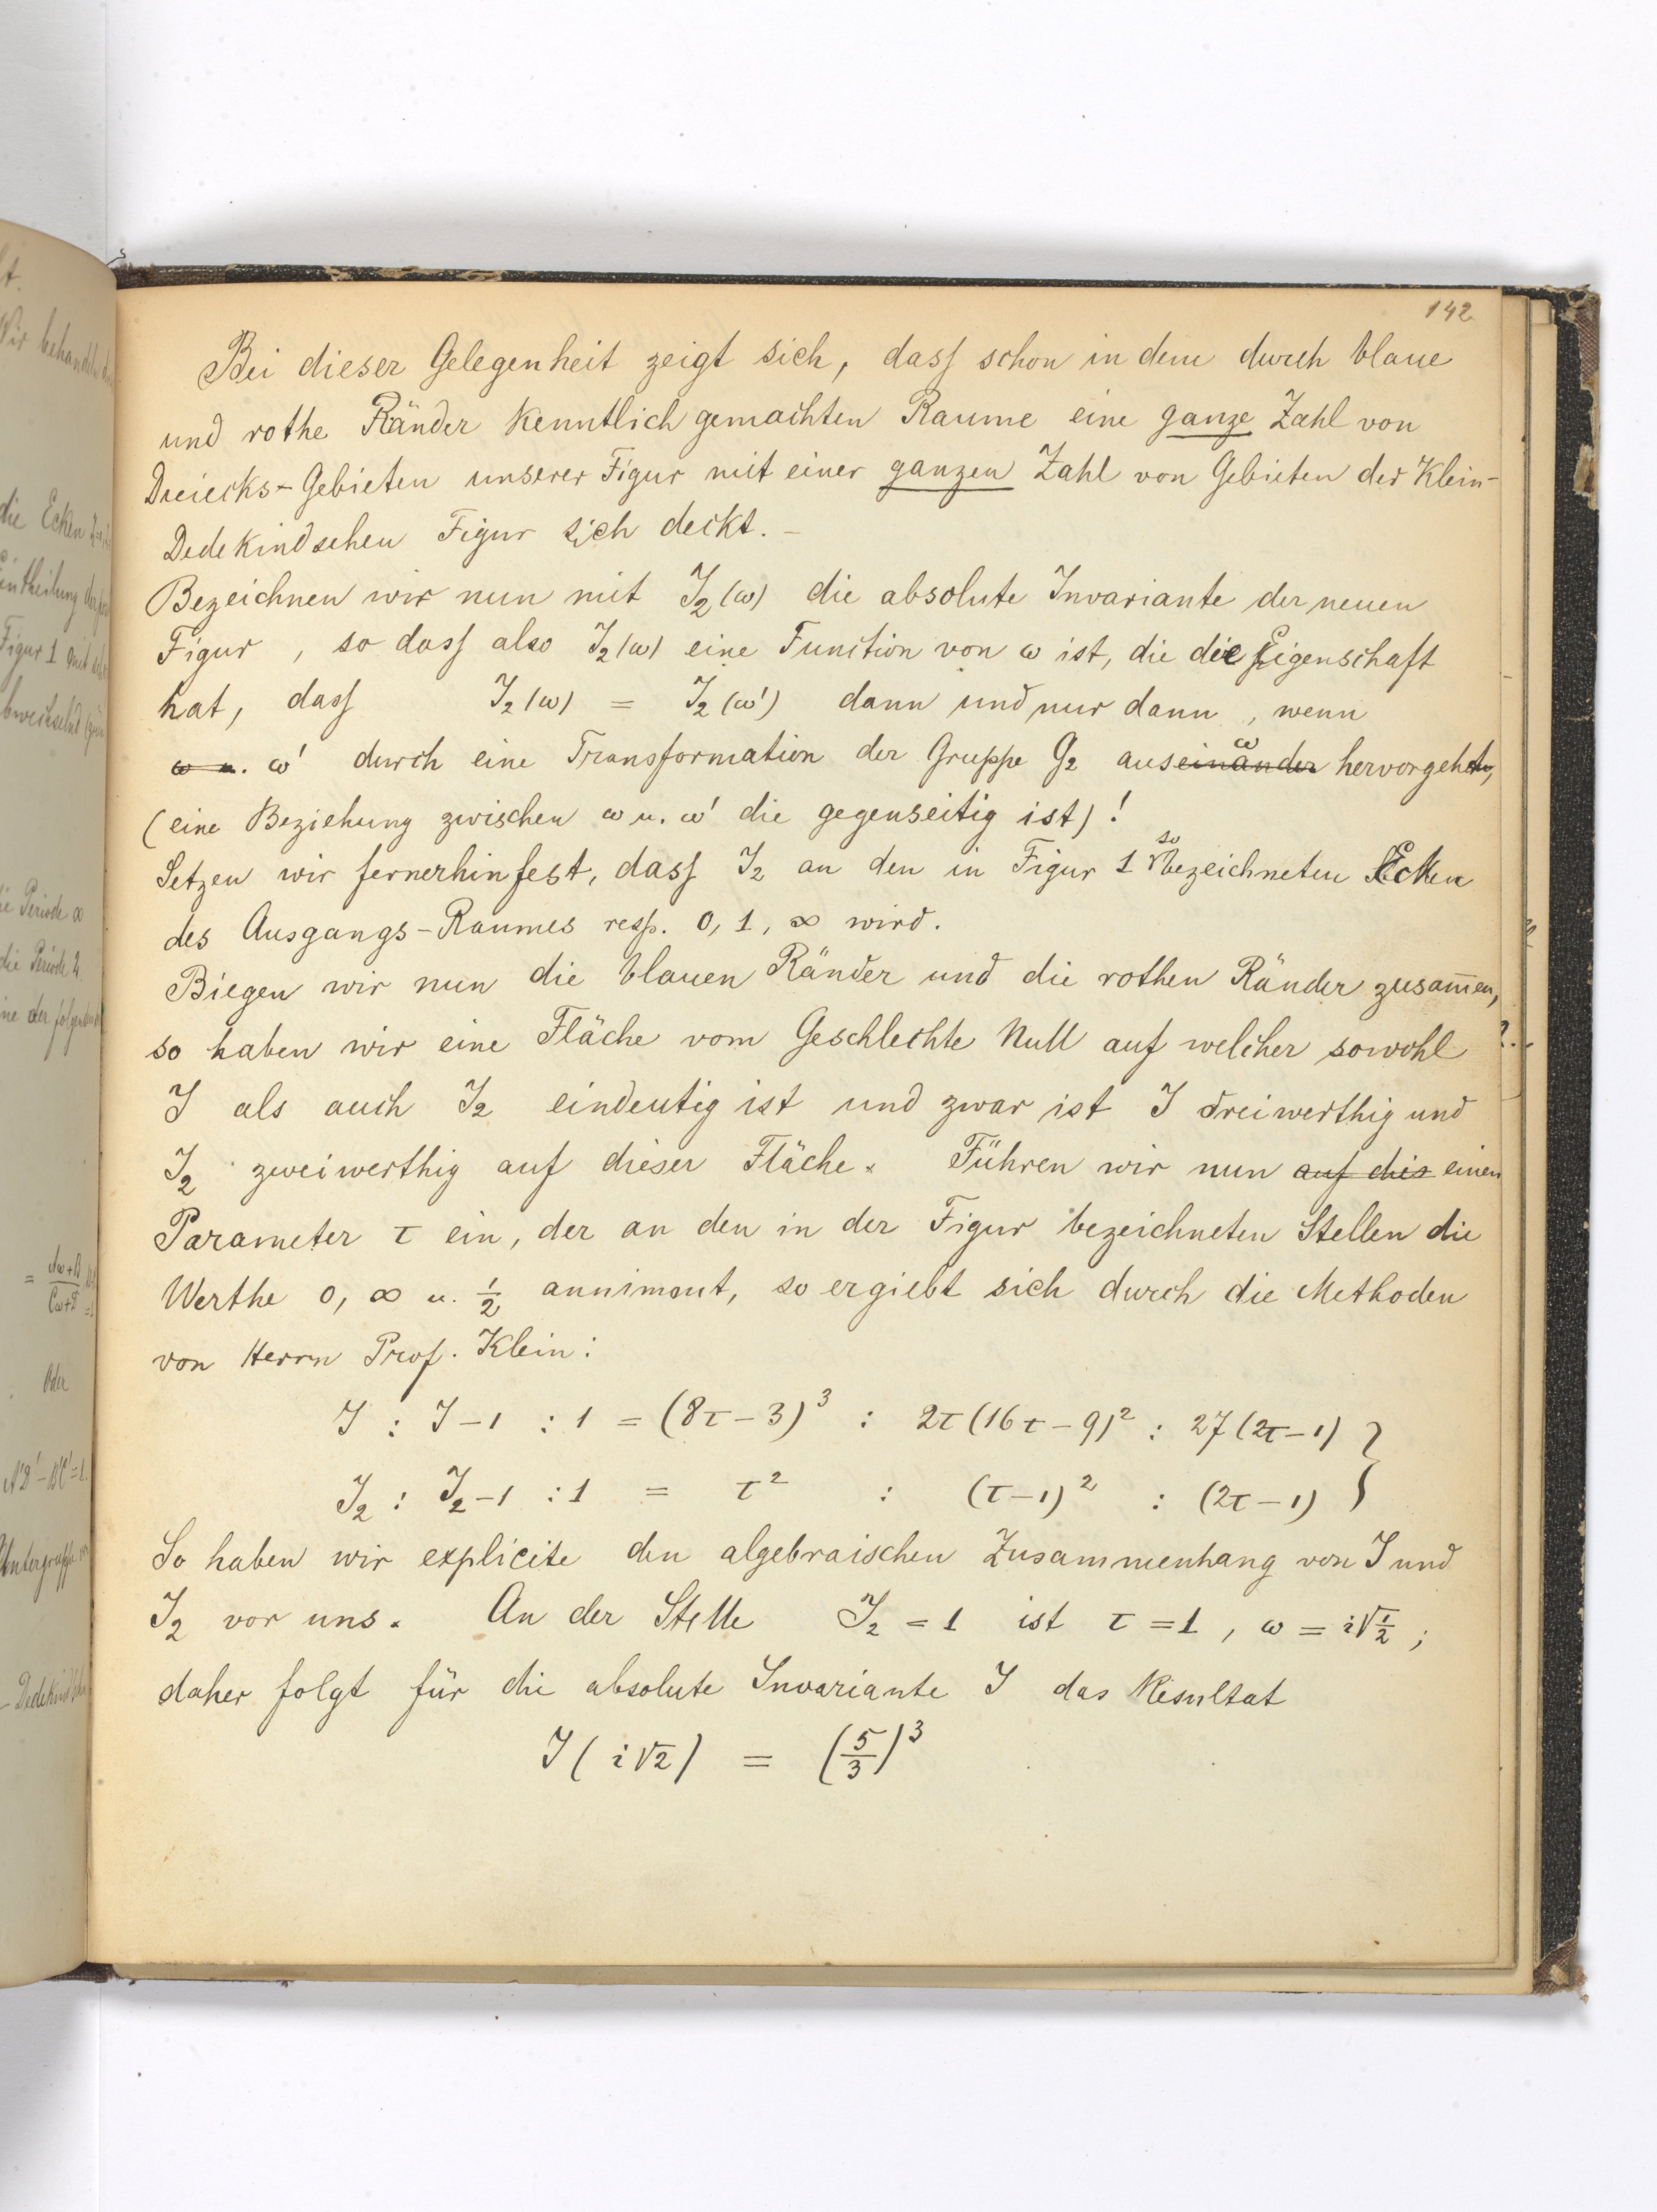 142
Bei dieser Gelegenheit zeigt sich, dass schon in dem durch blaue
und rothe Ränder kenntlich gemachten Raume eine ganze Zahl von
Dreiecks-Gebieten unserer Figur mit einer ganzen Zahl von Gebieten der Klein-
Dedekindschen Figur sich deckt. –
Bezeichnen wir nun mit J₂(ω) die absolute Invariante der neuen
Figur, so dass also J₂(ω) eine Function von ω ist, die die Eigenschaft
hat, dass J₂(ω) = J₂(ω') dann und nur dann, wenn
ω u. ω' durch eine Transformation der Gruppe G₂ auseinander ω hervorgehen,
(eine Beziehung zwischen ω u. ω' die gegenseitig ist)!
Setzen wir fernerhin fest, dass J₂ an den in Figur 1 so bezeichneten Ecken
des Ausgangs-Raumes resp. 0, 1, ∞ wird.
Biegen wir nun die blauen Ränder und die rothen Ränder zusam̅en,
so haben wir eine Fläche vom Geschlechte Null auf welcher sowohl
J als auch J₂ eindeutig ist und zwar ist J dreiwerthig und
J₂ zweiwerthig auf dieser Fläche. Führen wir nun auf dies einen
Parameter τ ein, der an den in der Figur bezeichneten Stellen die
Werthe 0, ∞ u. 1/2 annimmt, so ergiebt sich durch die Methoden
von Herrn Prof. Klein:
J : J–1 : 1 = (8τ–3)³ : 2τ(16τ–9)² : 27(2τ–1) }
J₂ : J₂–1 : 1 = τ² : (τ–1)² : (2τ–1)
So haben wir explicite den algebraischen Zusammenhang von J und
J₂ vor uns. An der Stelle J₂ = 1 ist τ = 1, ω = i√1/2;
daher folgt für die absolute Invariante J das Resultat
J(i√2) = (5/3)³